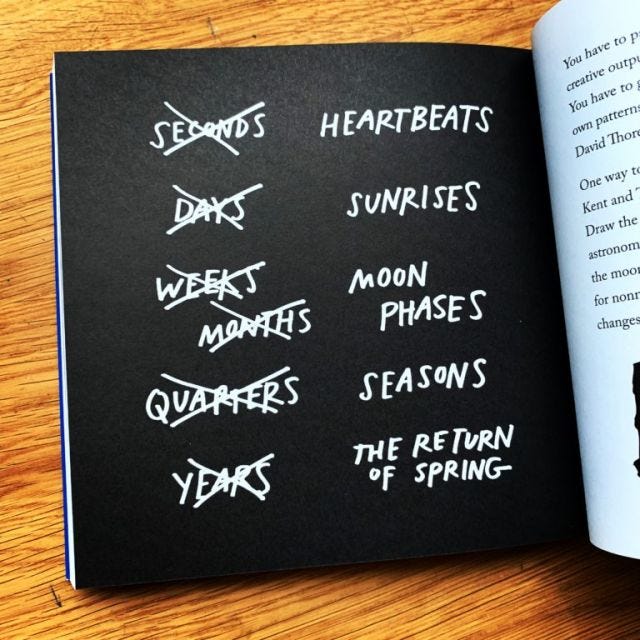 SECONDS HEARTBEATS
DAYS SUNRISES
WEEKS MOON
MONTHS PHASES
QUARTERS SEASONS
YEARS THE RETURN
OF SPRING
You have to
creative
You have to
own patterns
David
One way to
Kent and
Draw the
the moon
for
changes